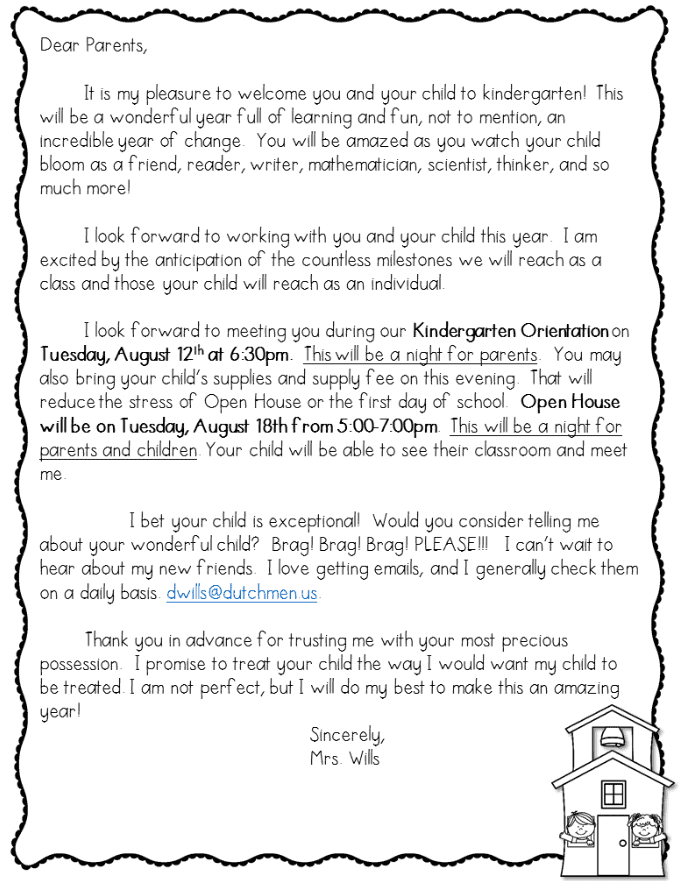 Dear Parents,
It is my pleasure to welcome you and your child to kindergarten! This
will be a wonderful year full of learning and fun, not to mention, an
incredible year of change. You will be amazed as you watch your child
bloom as a friend, reader, writer, mathematician, scientist, thinker, and so
much more!
I look forward to working with you and your child this year. I am
excited by the anticipation of the countless milestones we will reach as a
class and those your child will reach as an individual.
I look forward to meeting you during our Kindergarten Orientation on
Tuesday, August 12th at 6:30pm. This will be a night for parents. You may
also bring your child's supplies and supply fee on this evening. That will
reduce the stress of Open House or the first day of school. Open House
will be on Tuesday, August 18th from 5:00-7:00pm. This will be a night for
parents and children. Your child will be able to see their classroom and meet
me.
I bet your child is exceptional! Would you consider telling me
about your wonderful child? Brag! Brag! Brag! PLEASE!!! I can't wait to
hear about my new friends. I love getting emails, and I generally check them
on a daily basis. dwills@dutchmen.us.
Thank you in advance for trusting me with your most precious
possession. I promise to treat your child the way I would want my child to
be treated. I am not perfect, but I will do my best to make this an amazing
year!
Sincerely,
Mrs. Wills